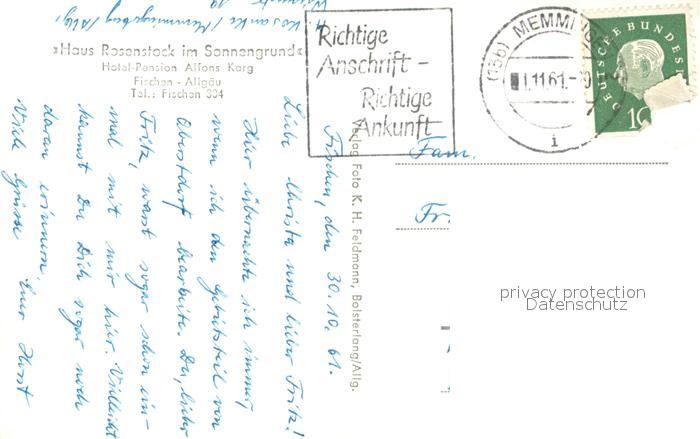 H. Kosanke, Memmingen/Allg.
»Haus Rosenstock im Sonnengrund«
Hotel-Pension Alfons Karg
Fischen - Allgäu
Tel.: Fischen 334
Fischen, den 30.10.61.
Liebe Christa und lieber Fritz!
Hier übernachte ich immer,
wenn ich den Gebietsteil von
Oberstdorf bearbeite. Du, lieber
Fritz, warst sogar schon ein-
mal mit mir hier. Vielleicht
kannst Du Dich sogar noch
daran erinnern.
Viele Grüsse Euer Horst
Verlag Foto K. H. Feldmann, Bolsterlang/Allg.
Richtige
Anschrift -
Richtige
Ankunft
(13b) MEMMINGEN
1.11.61.
i
DEUTSCHE BUNDESPOST
10
Fam.
Fr.
privacy protection
Datenschutz